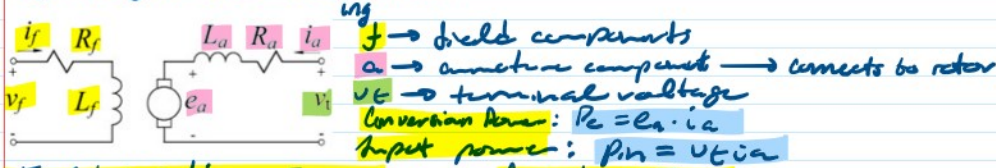 ing
i_f R_f L_a R_a i_a
f → field components
+ + +
a → armature component → connects to rotor
v_f L_f e_a v_t
vt → terminal voltage
Conversion Power: Pc = ea · ia
- - -
Input power: Pin = vt ia